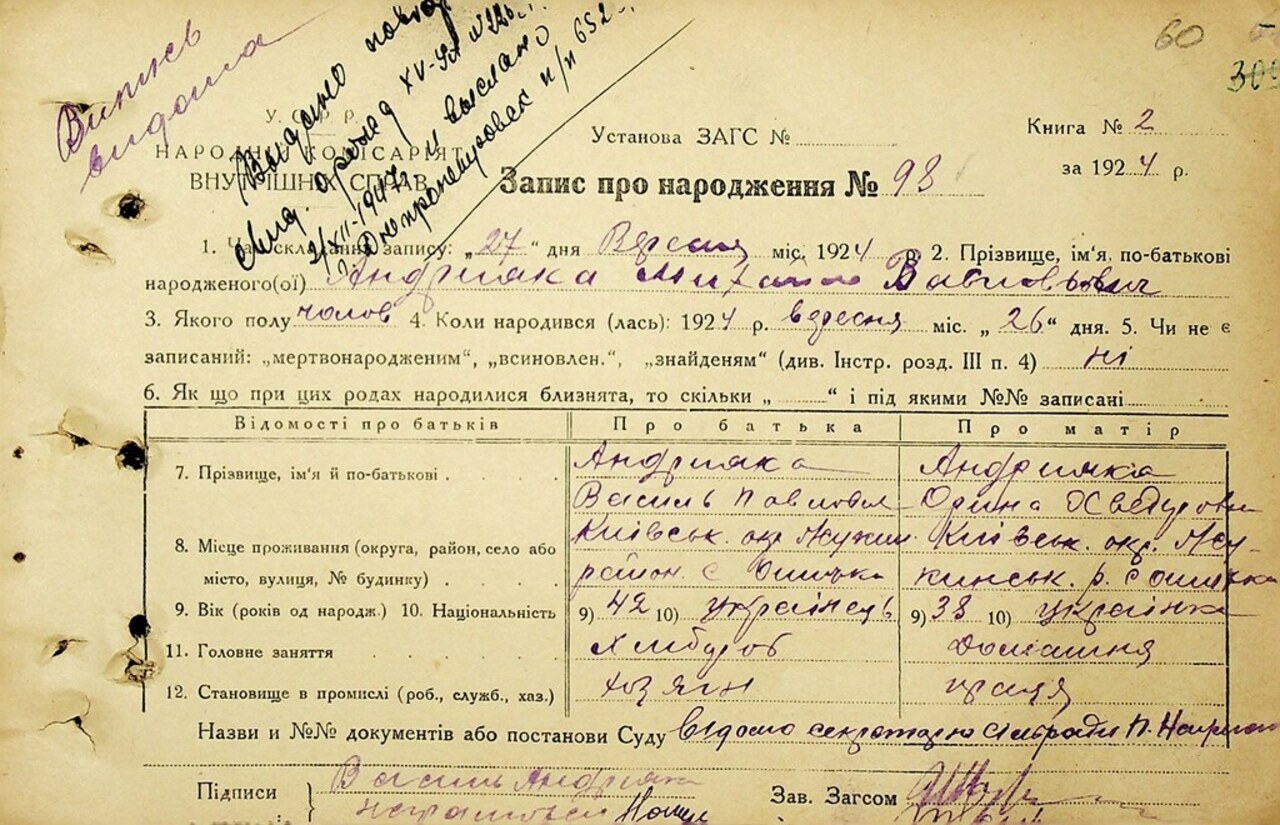 Випись
видана
Выдано повтор
свид.
XV-УЛ №
2/XII-1947 и выслано
Днепропетровск п/п 652
60
309
У. С. Р. Р.
НАРОДНІЙ КОМІСАРІЯТ
ВНУТРІШНІХ СПРАВ
Установа ЗАГС №
Книга № 2
за 1924 р.
Запис про народження № 98
1. Час складання запису: „27“ дня Вересня міс. 1924 р. 2. Прізвище, ім'я, по-батькові
народженого(ої) Андрияка Михайло Васильович
3. Якого полу чолов 4. Коли народився (лась): 1924 р. вересня міс. „26“ дня. 5. Чи не є
записаний: „мертвонародженим“, „всиновлен.“, „знайденям“ (див. Інстр. розд. III п. 4) ні
6. Як що при цих родах народилися близнята, то скільки „ “ і під якими №№ записані
Відомості про батьків Про батька Про матір
7. Прізвище, ім'я й по-батькові Андрияка Андрияка
Василь Павлович Орина Хведоровна
8. Місце проживання (округа, район, село або Київськ. окр. Київськ. окр.
місто, вулиця, № будинку) район. с р. с
9. Вік (років од народж.) 10. Національність 9) 42 10) українець 9) 38 10) українка
11. Головне заняття Хлібороб Домашня
12. Становище в промислі (роб., служб., хаз.) хозяін праця
Назви и №№ документів або постанови Суду відомо секретарю сільради П.
Підписи Василь Андрияка Зав. Загсом